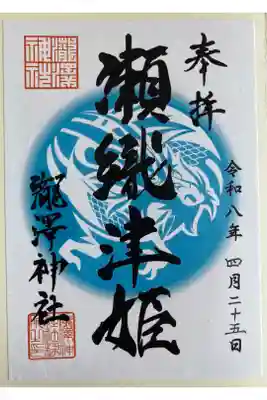 奉拝
令和八年 四月二十五日
瀬織津姫
瀧澤神社
瀧澤神社